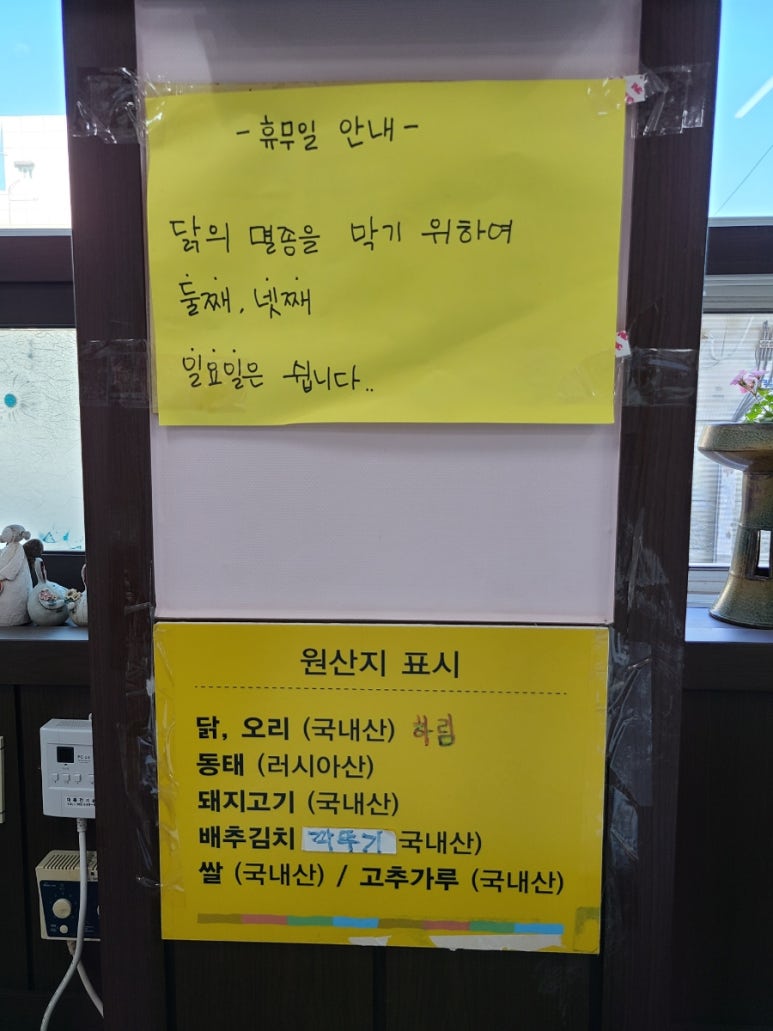 -휴무일 안내-
닭의 멸종을 막기 위하여
둘째, 넷째
일요일은 쉽니다..
원산지 표시
닭, 오리 (국내산) 하림
동태 (러시아산)
돼지고기 (국내산)
배추김치 깍뚜기 국내산)
쌀 (국내산) / 고추가루 (국내산)